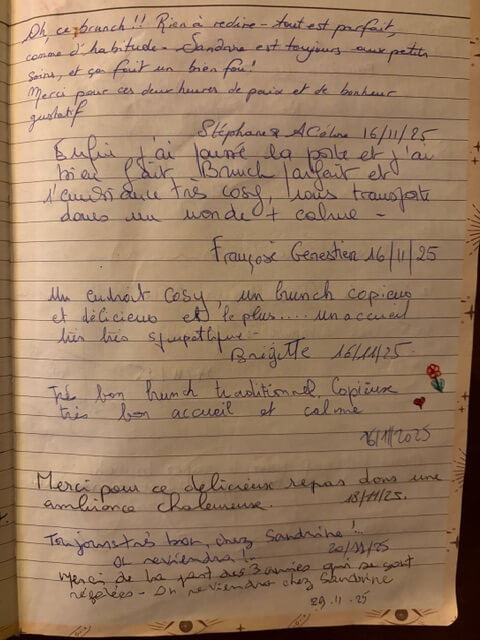 Oh, ce brunch !! Rien à redire - tout est parfait,
comme d'habitude. Sandrine est toujours aux petits
soins, et ça fait un bien fou !
Merci pour ces deux heures de paix et de bonheur
gustatif
Stéphane & 16/11/25
Enfin j'ai poussé la porte et j'ai
bien fait. Brunch parfait et
l'ambiance très cosy, nous transporte
dans un monde + calme -
Françoise Genestier 16/11/25
Un endroit cosy, un brunch copieux
et délicieux et le plus..... un accueil
très très sympathique -
Brigitte 16/11/25.
Très bon brunch traditionnel. Copieux
très bon accueil et calme
16/11/2025
Merci pour ce délicieux repas dans une
ambiance chaleureuse. 18/11/25.
Toujours très bon, chez Sandrine !
On reviendra !- 20/11/25
Merci de la part des 3 amies qui se sont
régalées - On reviendra chez Sandrine
29.11.25